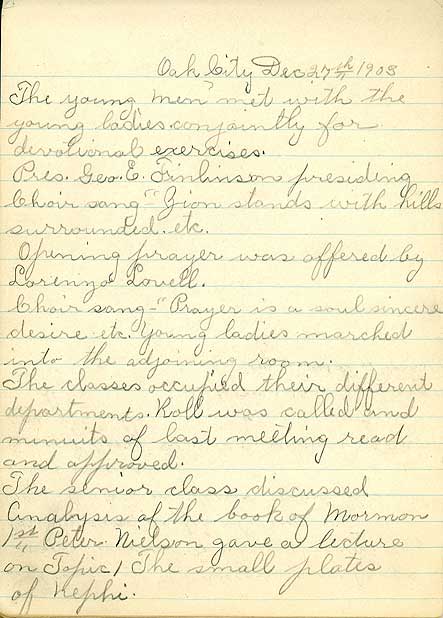 Oak City Dec 27th 1903
The young men met with the
young ladies conjointly for
devotional exercises.
Pres. Geo. E. Finlinson presiding
Choir sang "Zion stands with hills
surrounded. etc.
Opening prayer was offered by
Lorenzo Lovell.
Choir sang-"Prayer is a soul sincere
desire etc. Young ladies marched
into the adjoining room.
The classes occupied their different
departments. Roll was called and
minuits of last meeting read
and approved.
The senior class discussed
Analysis of the book of Mormon
1st Peter Nielson gave a lecture
on Topic 1 The small plates
of Nephi.